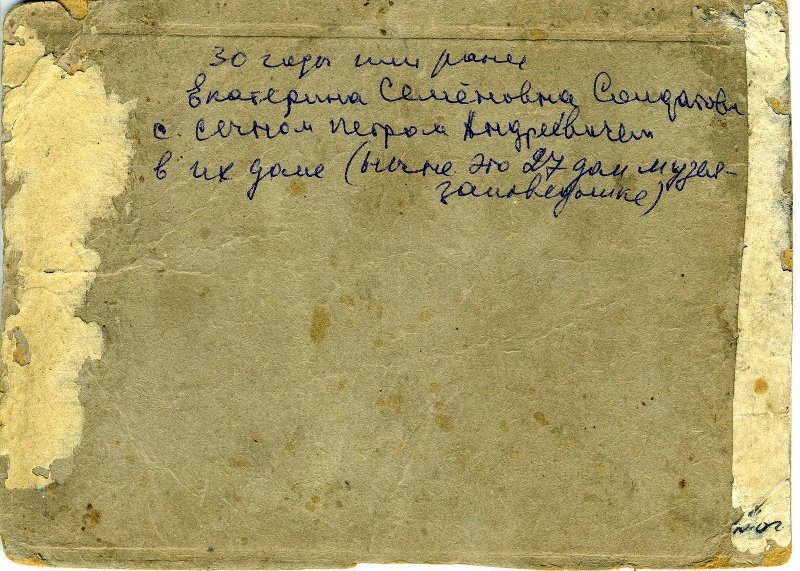 30 годы или ранее
Екатерина Семёновна Солдатова
с сыном Петром Андреевичем
в их доме (ныне это 27 дом музея-
заповедника)